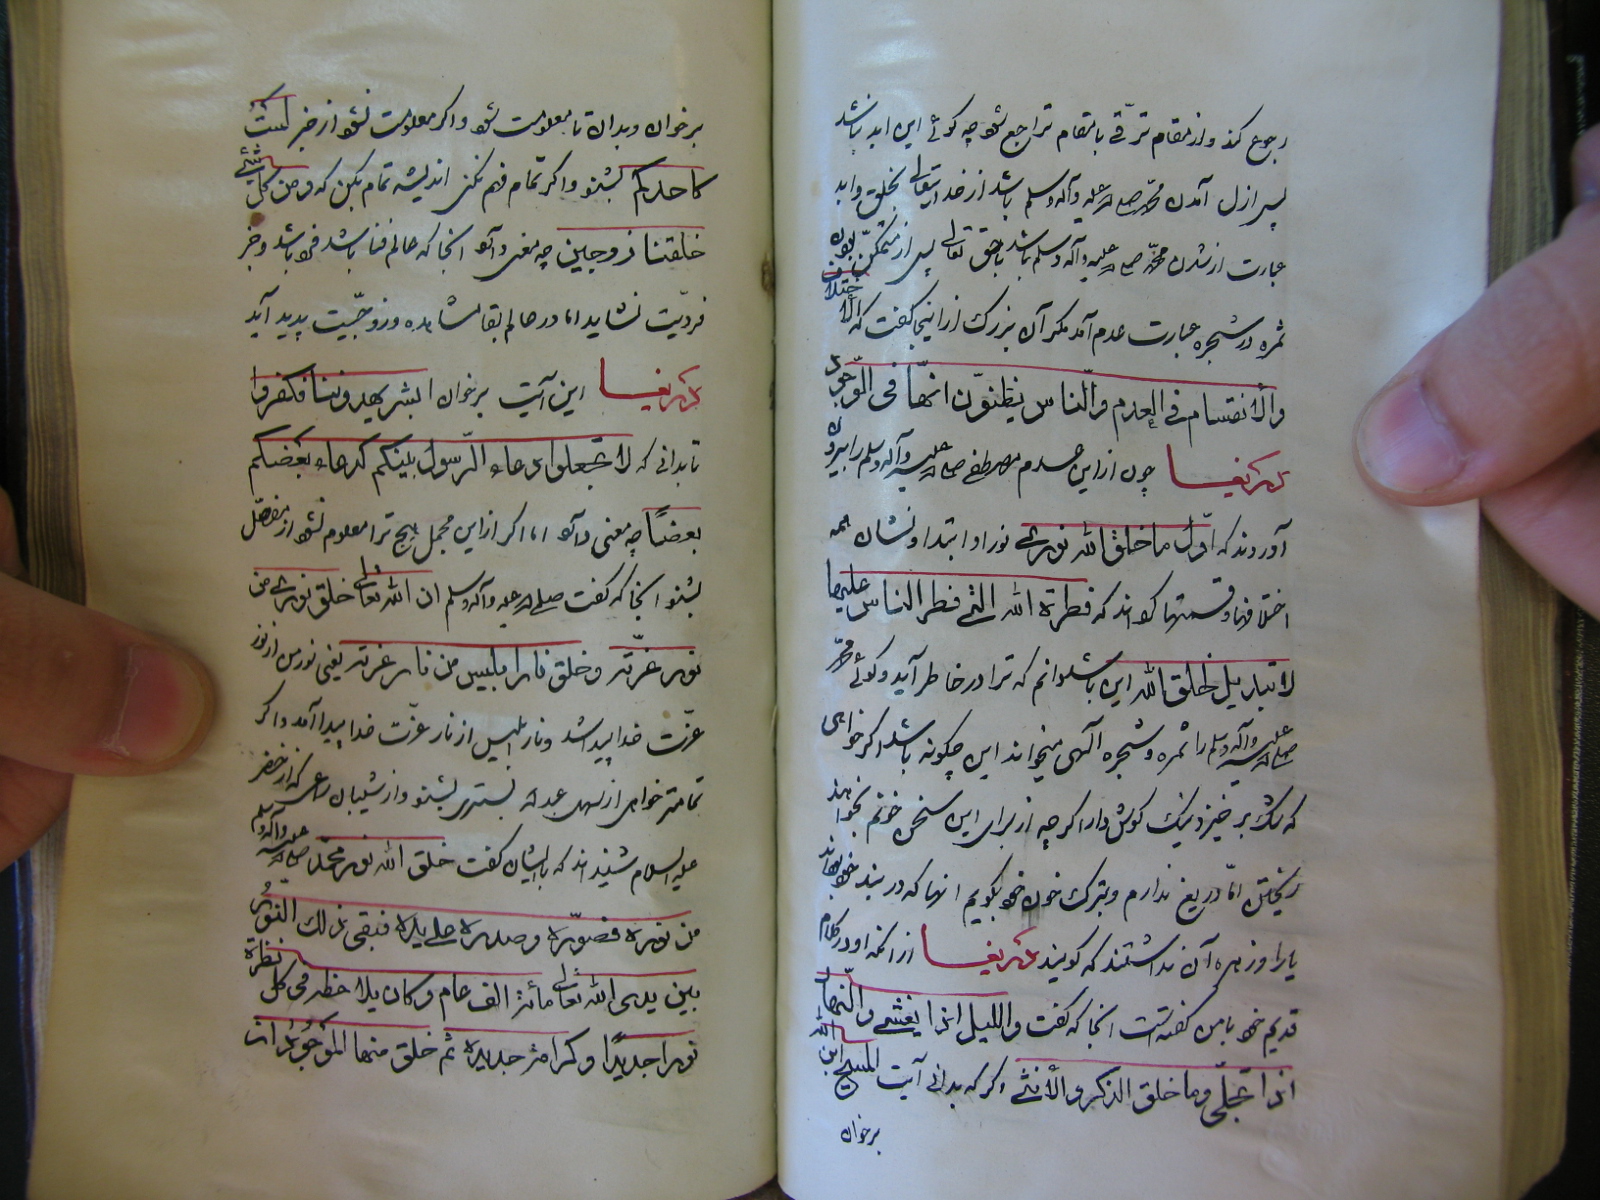 رجوع کند و از مقام ترقی با مقام تراجع شود چه گوئی این ابد باشد
پس ازل آمدن محمد صلی الله علیه وآله وسلم باشد از خدای تعالی بخلق و ابد
عبارت از شدن محمد صلی الله علیه وآله وسلم باشد با حق تعالی پس از متمکن بودن
ثمره در شجره عبارت عدم آمد مکر آن بزرک از اینجا کفت که الاختلاف
والانقسام فی العدم والناس یظنون انها فی الوجود
ای عزیز چون از این عدم مصطفی صلی الله علیه وآله وسلم را بیرون
آوردند که اول ما خلق الله نوری نور او ابتدا و نشان همه
اختلافها و قسمتها کواند که فطرة الله التی فطر الناس علیها
لا تبدیل لخلق الله این باشد دانم که ترا در خاطر آید و کوئی محمد
صلی الله علیه وآله وسلم را ثمره و شجره الهی میخواند این چکونه باشد اکر خواهی
که شک برخیزد نیک کوش دار اکر چه از برای این سخن خونم بخواهند
ریختن اما دریغ ندارم و بترک خود خود بکویم انها که در بند خود بودند
یارا و زهره آن نداشتند که کویند ای عزیز از آنکه او در کلام
قدیم خود با من کفته است انجا که کفت واللیل اذا یغشی والنهار
اذا تجلی وما خلق الذکر والانثی وکر که بدانی آیت المسیح ابن الله
برخوان
برخوان و بدان تا معلومت شود و اکر معلومت نشود از خبر لست
کاحدکم بشنو و اکر تمام فهم نکنی اندیشه تمام بکن که ومن کل شیئ
خلقنا زوجین چه معنی دارد انجا که عالم فنا باشد فرد باشد و جز
فردیت نشاید اما در عالم بقا مشاهده و زوجیت پدید آید
ای عزیز این آیت برخوان ابشر یهدوننا فکفروا
تا بدانی که لا تجعلوا دعاء الرسول بینکم کدعاء بعضکم
بعضا چه معنی دارد اما اکر از این مجمل هیچ ترا معلوم نشود از مفصل
بشنو انجا که کفت صلی الله علیه وآله وسلم ان الله تعالی خلق نوری من
نور عزته و خلق نار ابلیس من نار عزته یعنی نور من از نور
عزت خدا پیدا شد و نار ابلیس از نار عزت خدا پیدا آمد و اکر
تمامتر خواهی از سهل عبدالله تستری بشنو و از شیبان راعی که از خضر
علیه السلام شنیدند که بایشان کفت خلق الله نور محمد صلی الله علیه وآله وسلم
من نوره فصوره وصدره علی یده فبقی ذلک النور
بین یدی الله تعالی مائة الف عام وکان یلاحظه فی کل نظرة
نورا جدیدا وکرامة جدیدة ثم خلق منها الموجودات